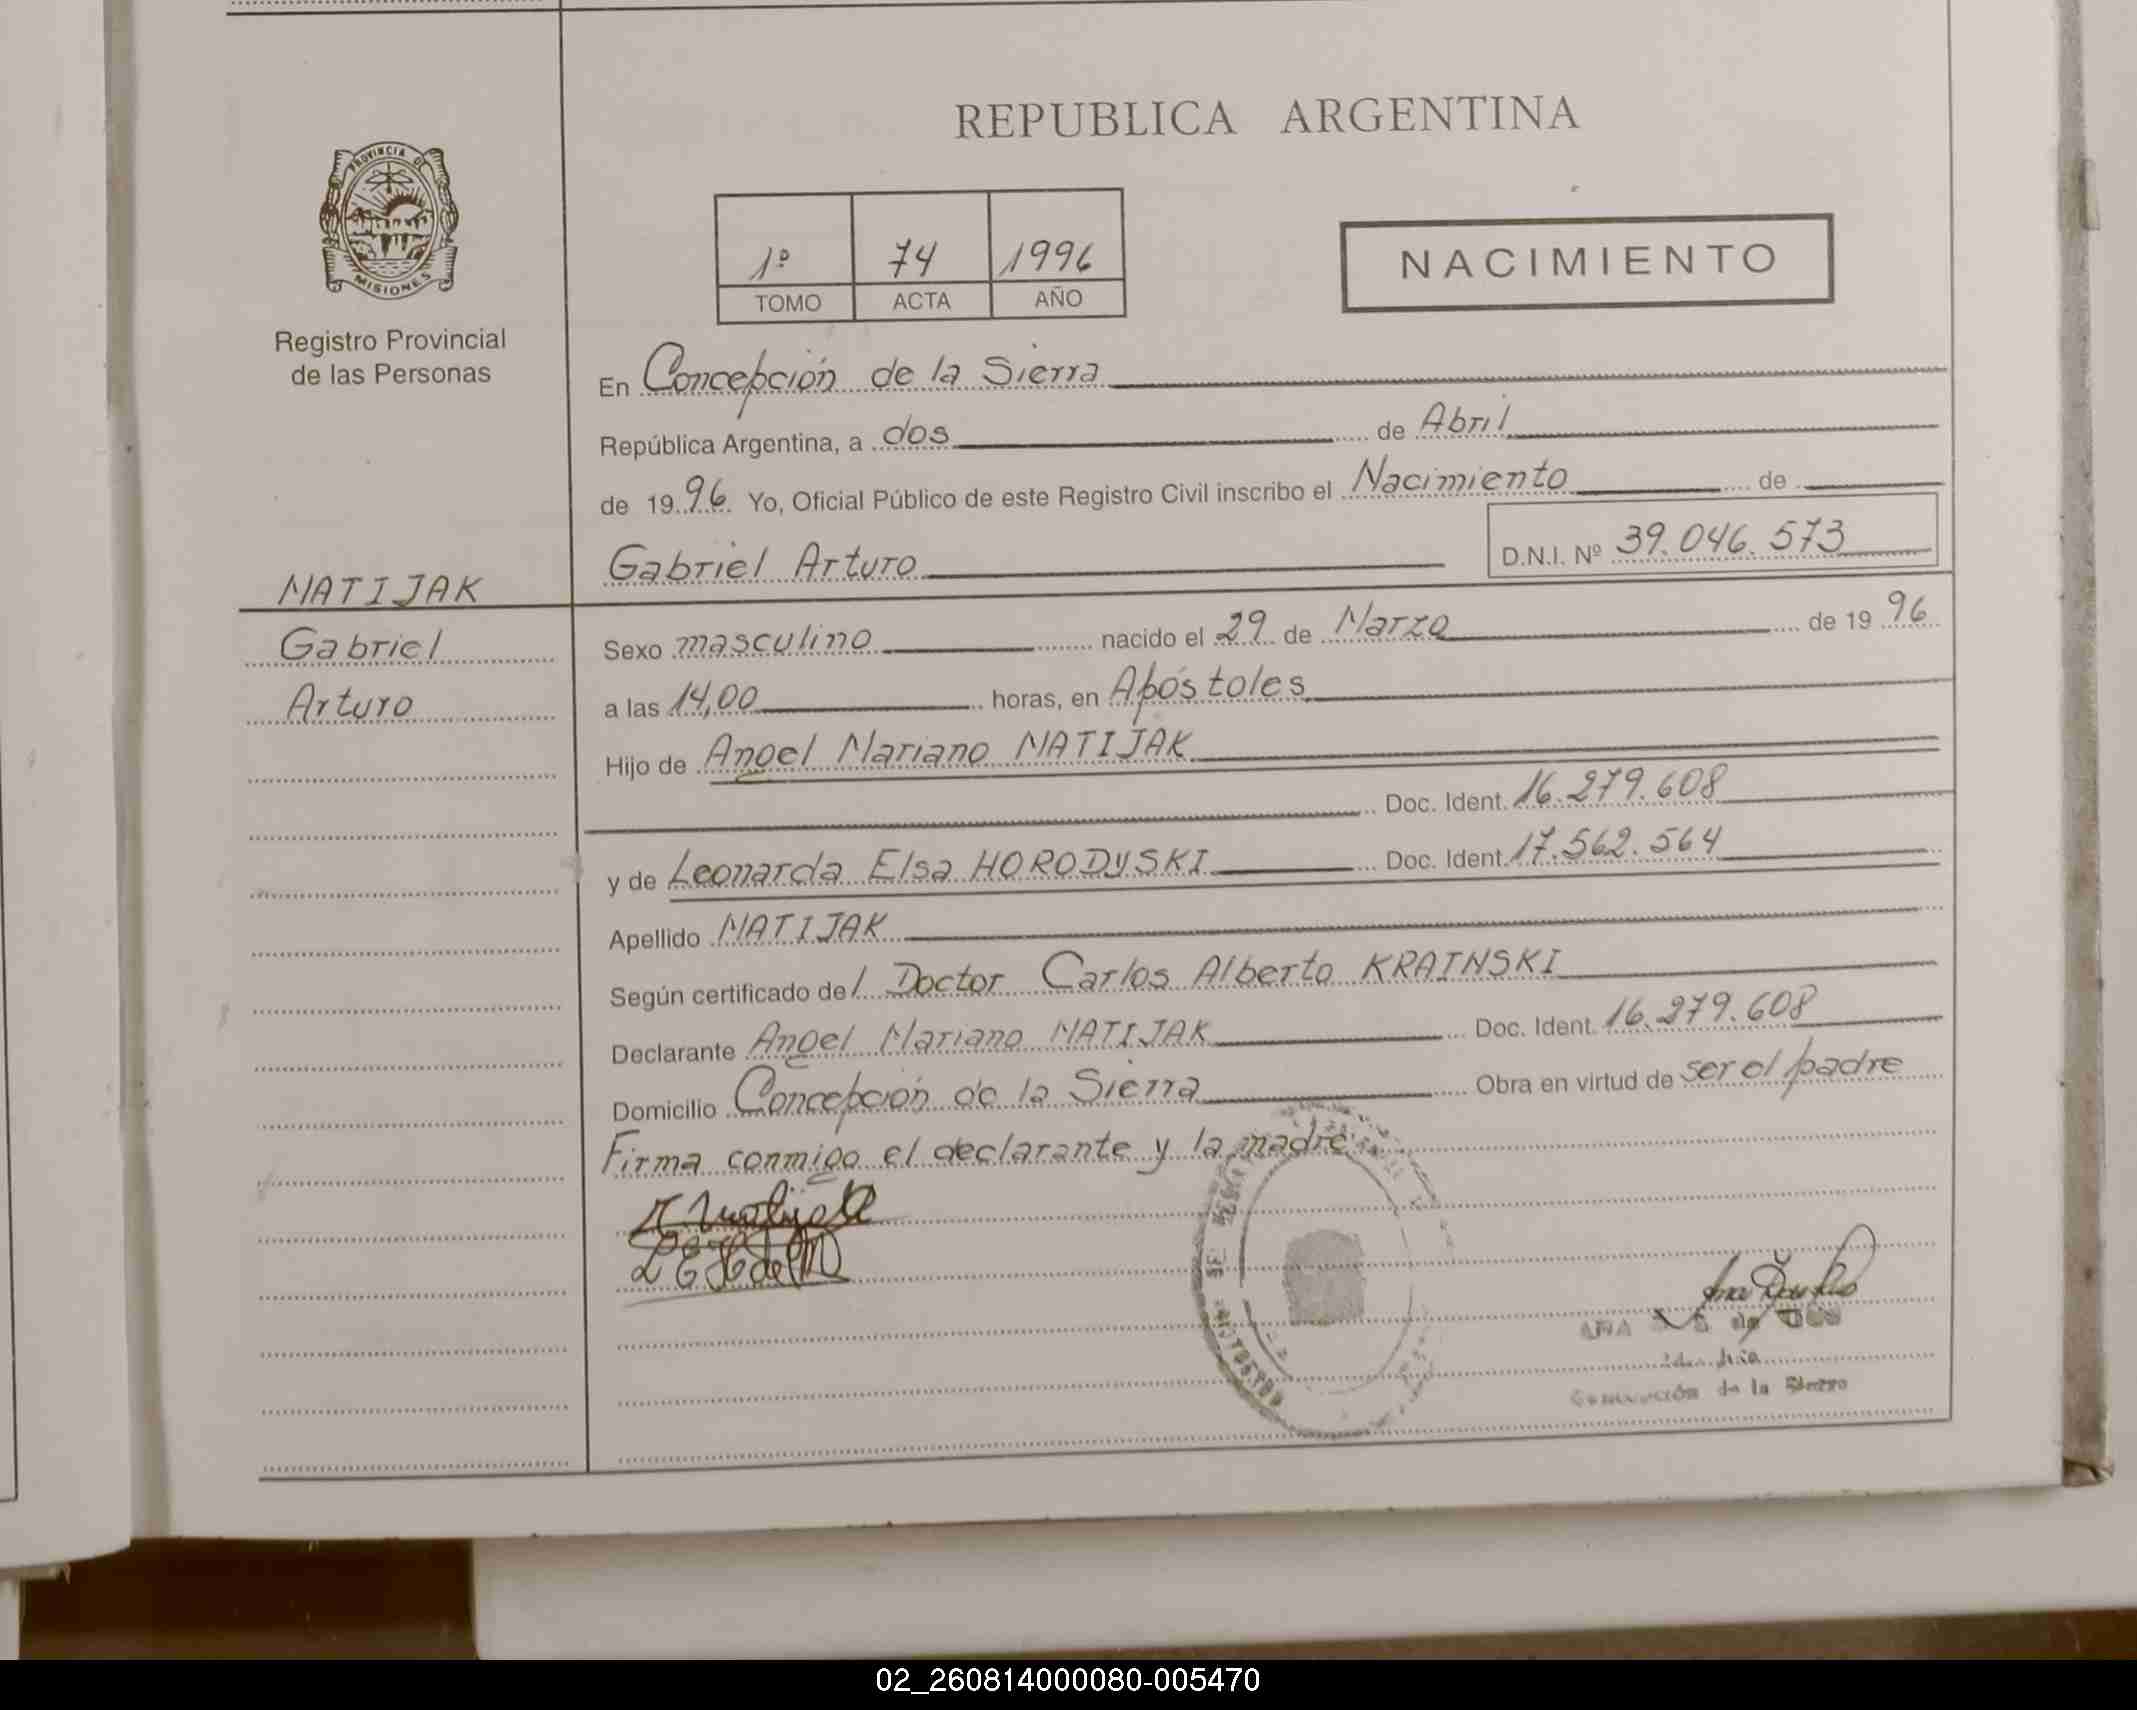 REPUBLICA ARGENTINA
PROVINCIA DE
MISIONES
Registro Provincial
de las Personas
1º 74 1996
TOMO ACTA AÑO
NACIMIENTO
En Concepción de la Sierra
República Argentina, a dos de Abril
de 1996. Yo, Oficial Público de este Registro Civil inscribo el Nacimiento de
Gabriel Arturo D.N.I. Nº 39.046.573
MATIJAK
Gabriel
Arturo
Sexo masculino nacido el 29 de Marzo de 1996
a las 14,00 horas, en Apóstoles
Hijo de Angel Mariano MATIJAK
Doc. Ident. 16.279.608
y de Leonarda Elsa HORODYSKI Doc. Ident. 17.562.564
Apellido MATIJAK
Según certificado del Doctor Carlos Alberto KRAINSKI
Declarante Angel Mariano MATIJAK Doc. Ident. 16.279.608
Domicilio Concepción de la Sierra Obra en virtud de ser el padre
Firma conmigo el declarante y la madre
ANA
de la Sierra
02_260814000080-005470